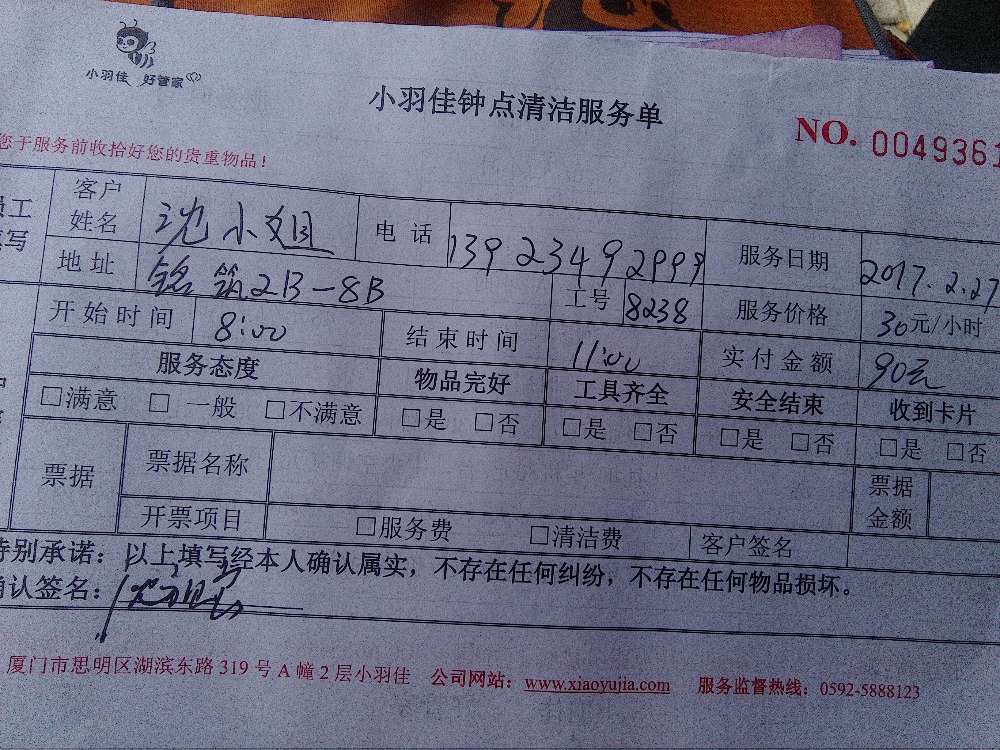 小羽佳 好管家
小羽佳钟点清洁服务单
NO. 0049361
您于服务前收拾好您的贵重物品！
员工
填写
客户姓名 沈小姐 电话 13923492999 服务日期 2017.2.27
地址 铭筑2B-8B 工号 8238 服务价格 30元/小时
开始时间 8:00 结束时间 11:00 实付金额 90元
服务态度 物品完好 工具齐全 安全结束 收到卡片
□满意 □一般 □不满意 □是 □否 □是 □否 □是 □否 □是 □否
票据 票据名称 票据金额
开票项目 □服务费 □清洁费 客户签名
特别承诺：以上填写经本人确认属实，不存在任何纠纷，不存在任何物品损坏。
确认签名：
厦门市思明区湖滨东路319号A幢2层小羽佳 公司网站：www.xiaoyujia.com 服务监督热线：0592-5888123